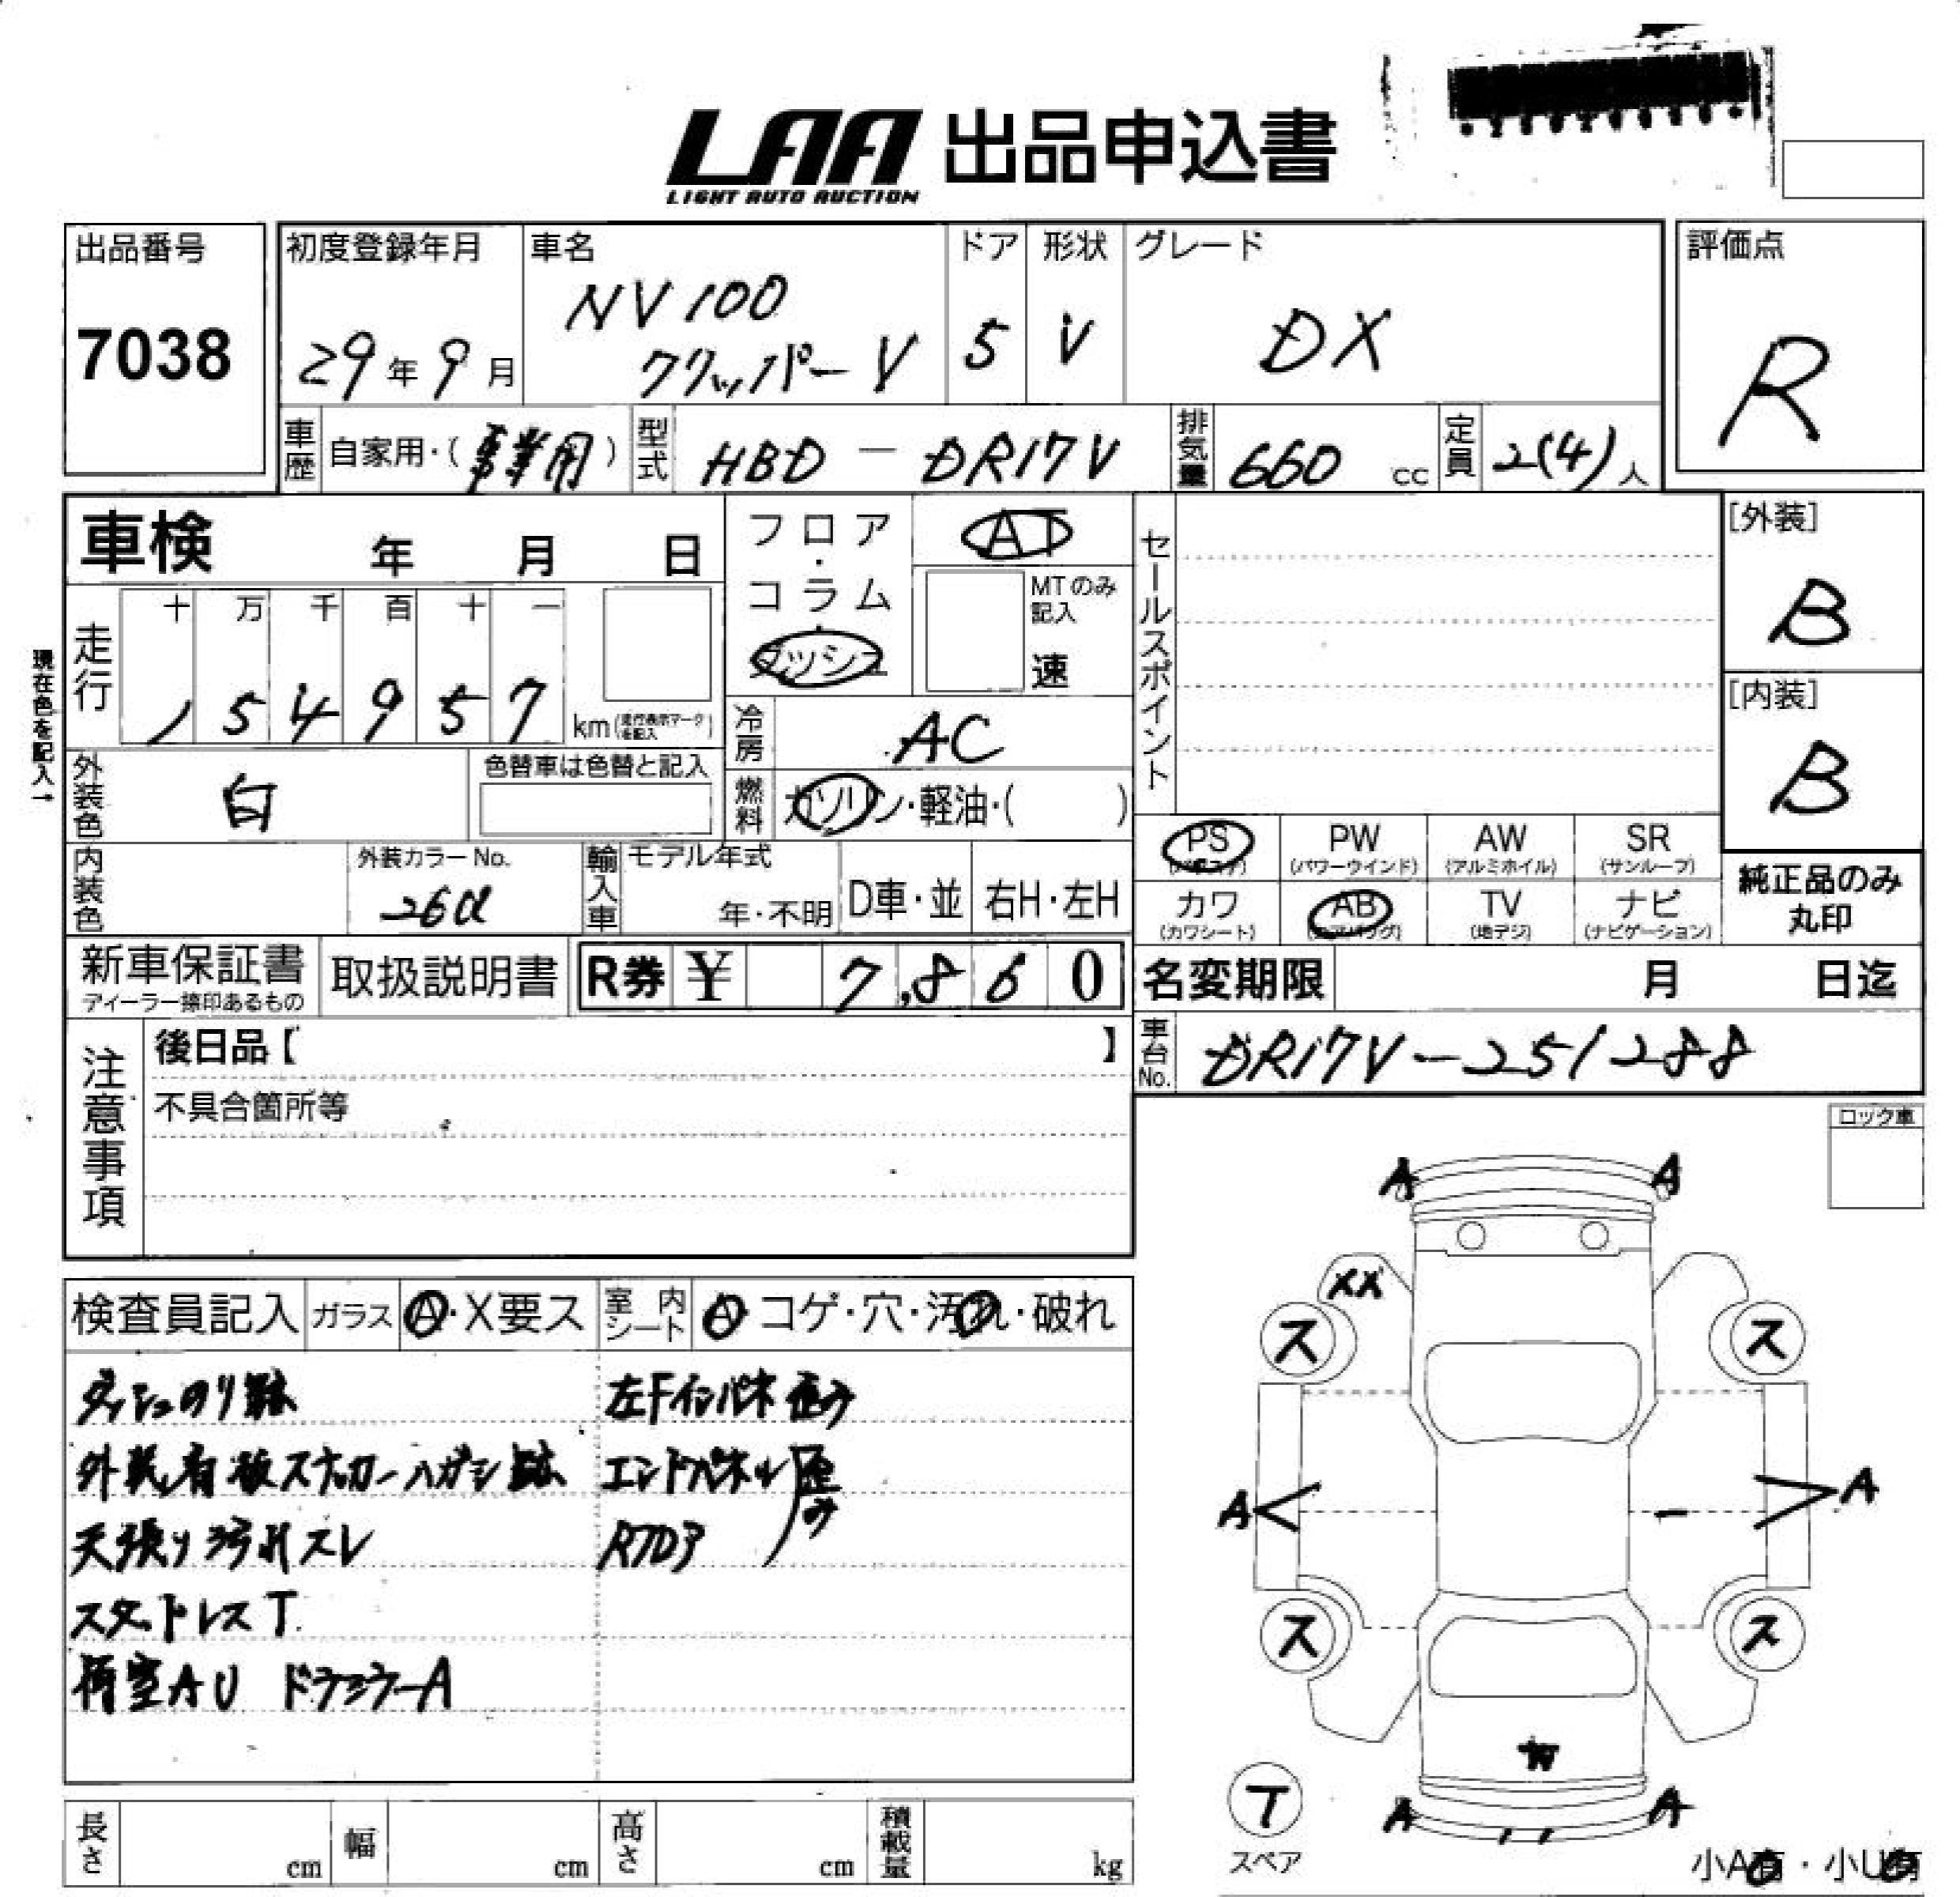 LAA 出品申込書
LIGHT AUTO AUCTION
出品番号
7038
初度登録年月
29年9月
車名
NV100
クリッパーV
ドア
5
形状
V
グレード
DX
評価点
R
車歴
自家用・(事業用)
型式
HBD-DR17V
排気量
660 cc
定員
2(4)人
車検 年 月 日
フロア・コラム・ダッシュ
AT
MTのみ記入
速
セールスポイント
[外装]
B
[内装]
B
現在色を記入→
走行
十 万 千 百 十 一
1 5 4 9 5 7 km(走行表示マークを記入)
冷房
AC
燃料
ガソリン・軽油・( )
外装色
白
色替車は色替と記入
内装色
外装カラーNo.
26U
輸入車
モデル年式
年・不明
D車・並
右H・左H
PS
(パワステ)
PW
(パワーウインド)
AW
(アルミホイル)
SR
(サンルーフ)
カワ
(カワシート)
AB
(エアバッグ)
TV
(地デジ)
ナビ
(ナビゲーション)
純正品のみ
丸印
新車保証書
ディーラー捺印あるもの
取扱説明書
R券 ¥ 7,860
名変期限 月 日迄
車台No.
DR17V-251288
注意事項
後日品【 】
不具合箇所等
ロック車
検査員記入
ガラス
A・X要ス
室内シート
A・コゲ・穴・汚れ・破れ
ダッシュのり跡
外装看板ステッカーハガシ跡
天張り汚れスレ
スタッドレスT
荷室AU ドアミラーA
左Fインパネ歪み
エンドパネル
Rフロア
歪み
A A
XX
ス ス
A A
ス ス
W
A A
T
スペア
小A有・小U有
長さ cm
幅 cm
高さ cm
積載量 kg